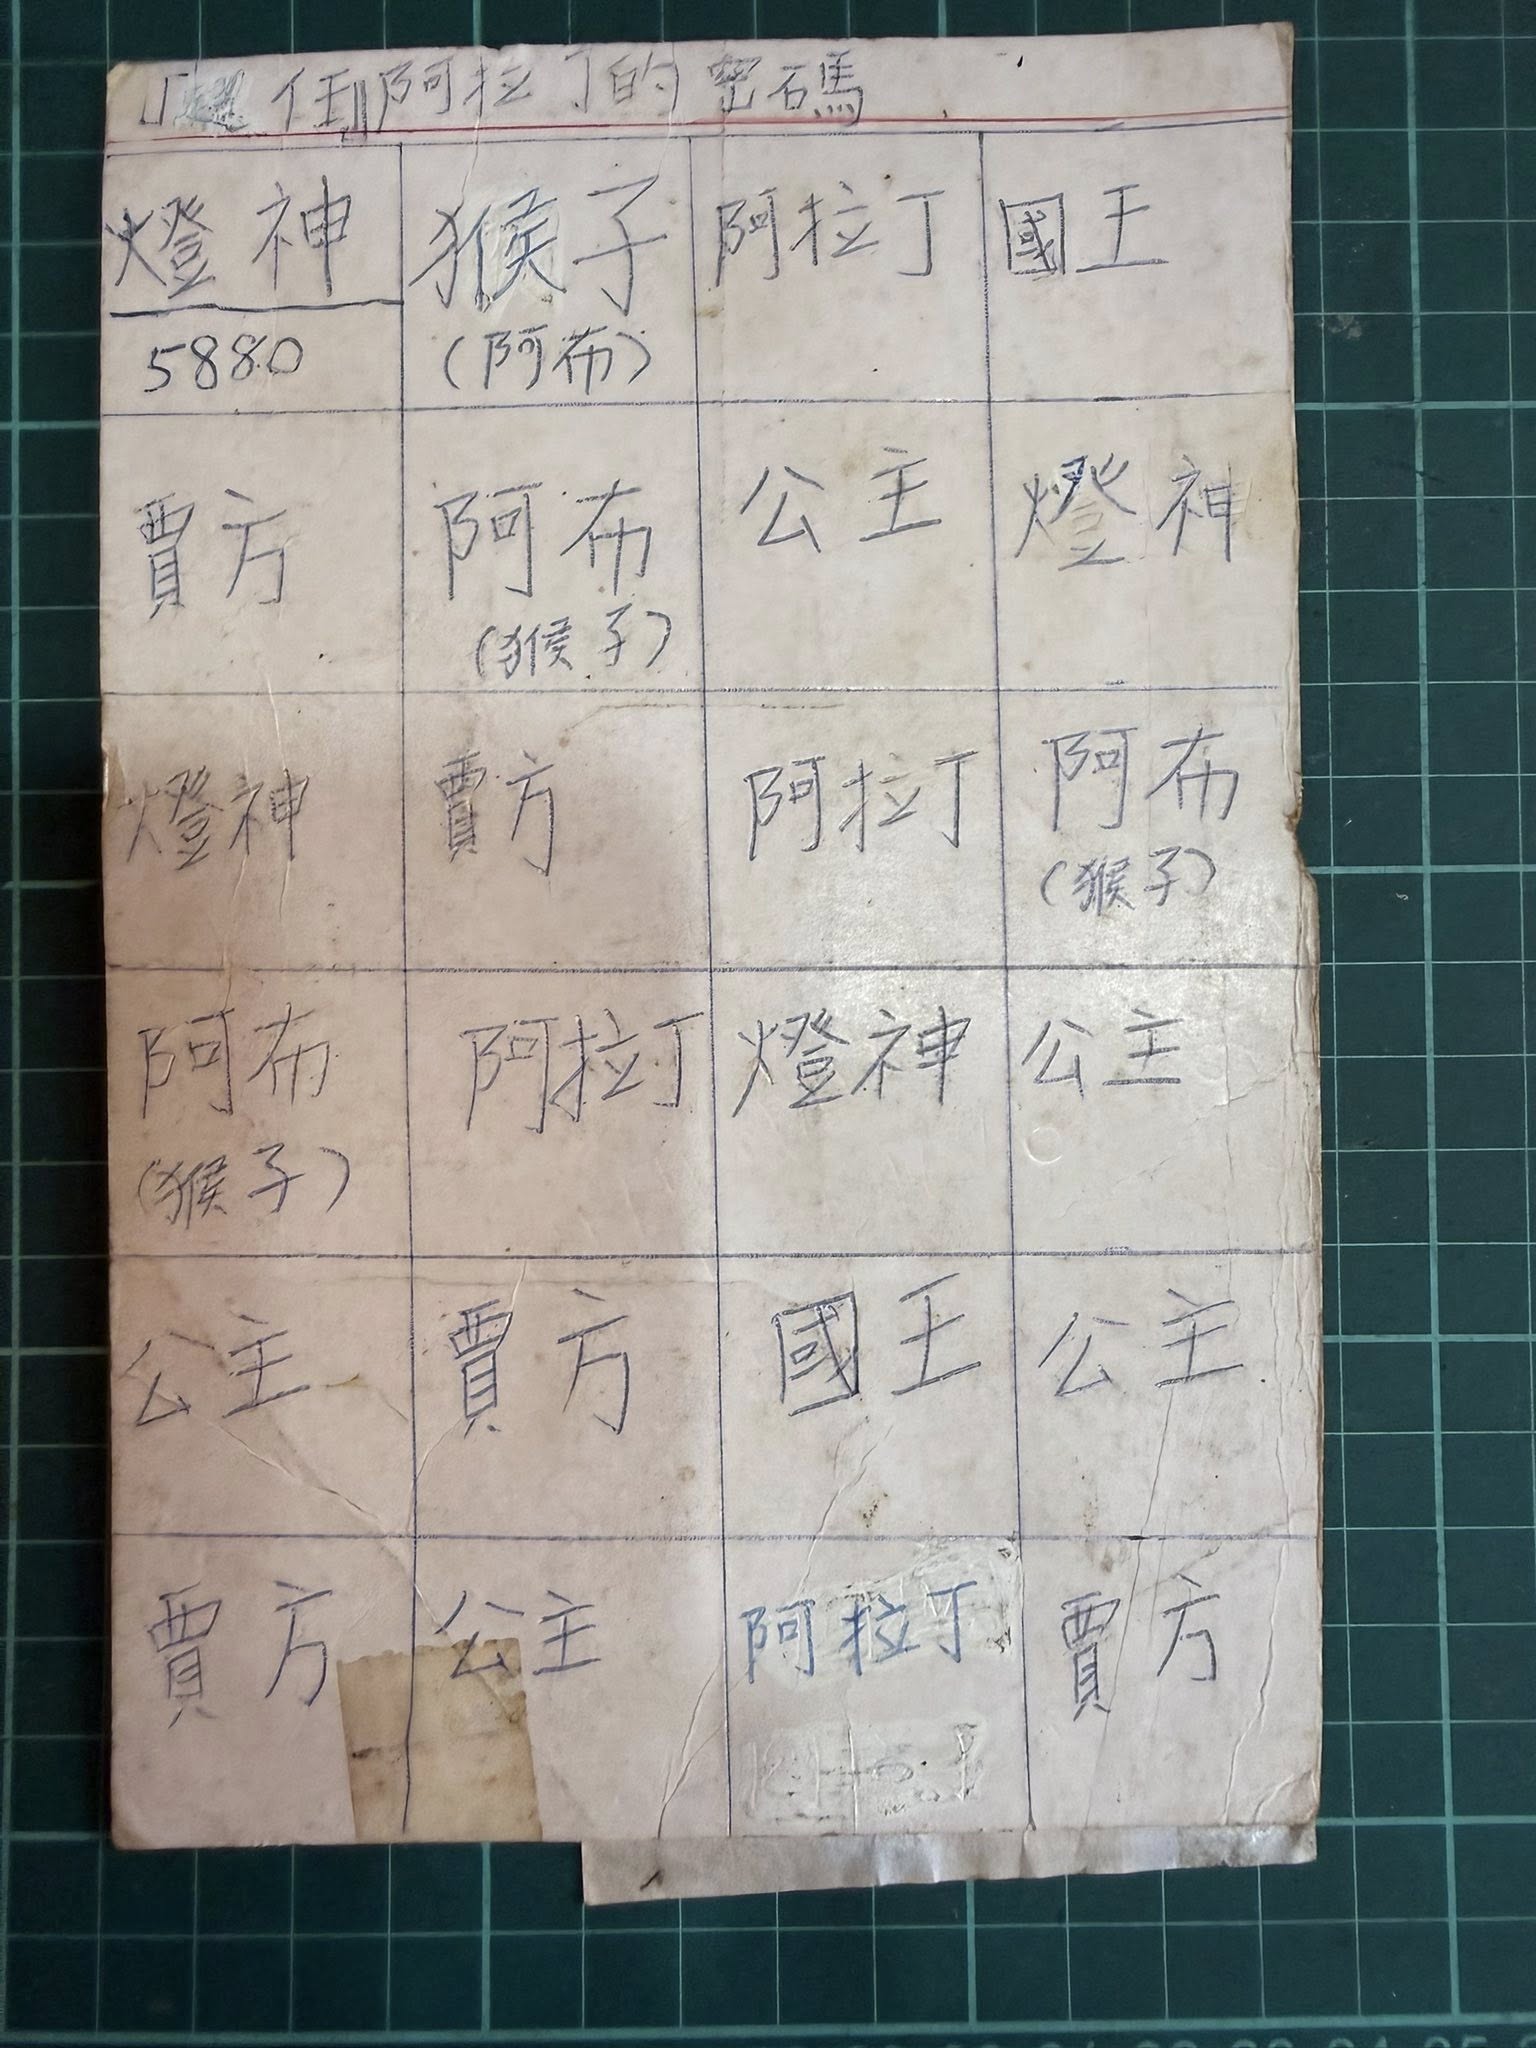 任阿拉丁的密碼
燈神 猴子 阿拉丁 國王
5880 (阿布)
賈方 阿布 公主 燈神
(猴子)
燈神 賈方 阿拉丁 阿布
(猴子)
阿布 阿拉丁 燈神 公主
(猴子)
公主 賈方 國王 公主
賈方 公主 阿拉丁 賈方